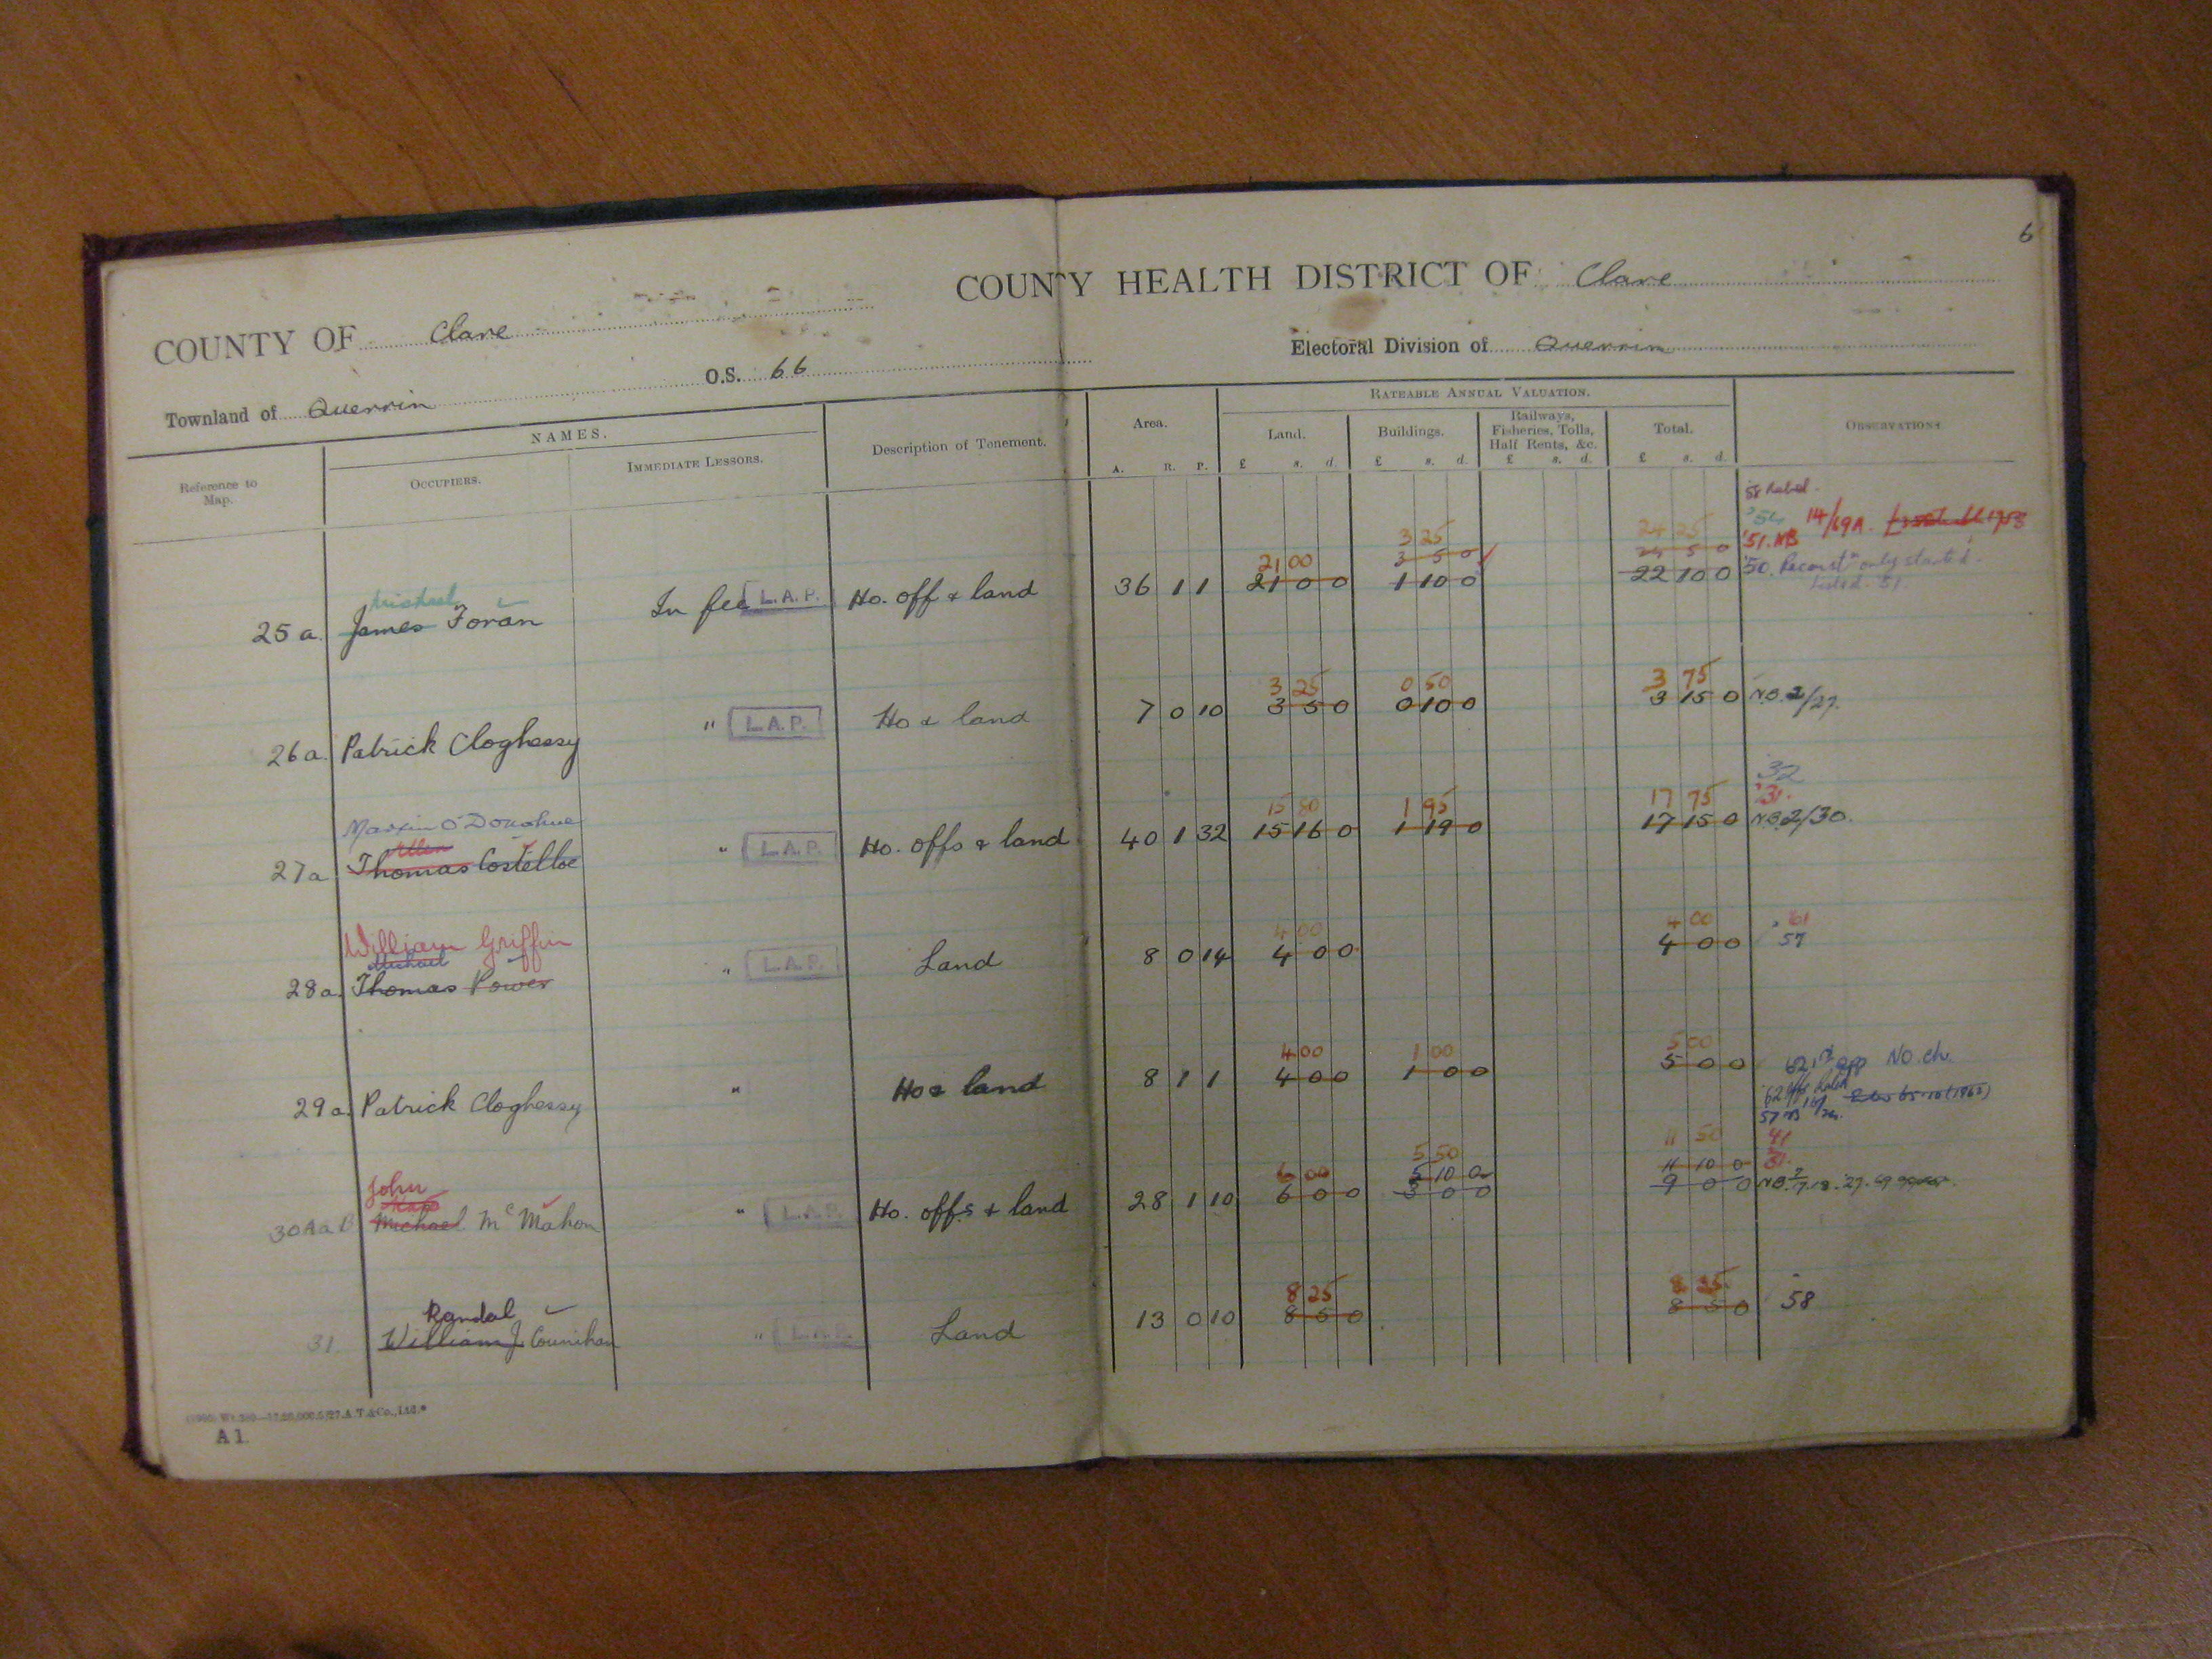 6
COUNTY OF Clare
COUNTY HEALTH DISTRICT OF Clare
Townland of Querrin
O.S. 66
Electoral Division of Querrin
Reference to Map.
NAMES.
OCCUPIERS.
IMMEDIATE LESSORS.
Description of Tenement.
Area.
A. R. P.
RATEABLE ANNUAL VALUATION.
Land.
£ s. d.
Buildings.
£ s. d.
Railways, Fisheries, Tolls, Half Rents, &c.
£ s. d.
Total.
£ s. d.
OBSERVATIONS
58
3 25
24 25
'54 14/69A.
Michael
21 00
3 5 0
24 5 0
'51. NB
25a. James Foran In fee L.A.P. Ho. off & land 36 1 1 21 0 0 1 10 0 22 10 0
'50. Reconstn only started.
3 25
0 50
3 75
26a. Patrick Cloghessy " L.A.P. Ho & land 7 0 10 3 5 0 0 10 0 3 15 0 N.B. 2/29.
32
Martin O'Donohue
15 80
1 95
17 75
'31.
Ellen
27a Thomas Costelloe " L.A.P. Ho. offs & land 40 1 32 15 16 0 1 19 0 17 15 0 N.B. 2/30.
William Griffin
4 00
4 00
'61
Michael
28a. Thomas Power " L.A.P. Land 8 0 14 4 0 0 4 0 0 57
4 00
1 00
5 00
29a. Patrick Cloghessy " Ho & land 8 1 1 4 0 0 1 0 0 5 0 0
62 1st app No ch.
57 NB
John
6 00
5 50
11 50
41
Mary
5 10 0
11 10 0
31.
30AaB Michael McMahon " L.A.P. Ho. offs & land 28 1 10 6 0 0 3 0 0 9 0 0
Randal
8 25
8 25
31 William J Counihan " L.A.P. Land 13 0 10 8 5 0 8 5 0 58
A 1.